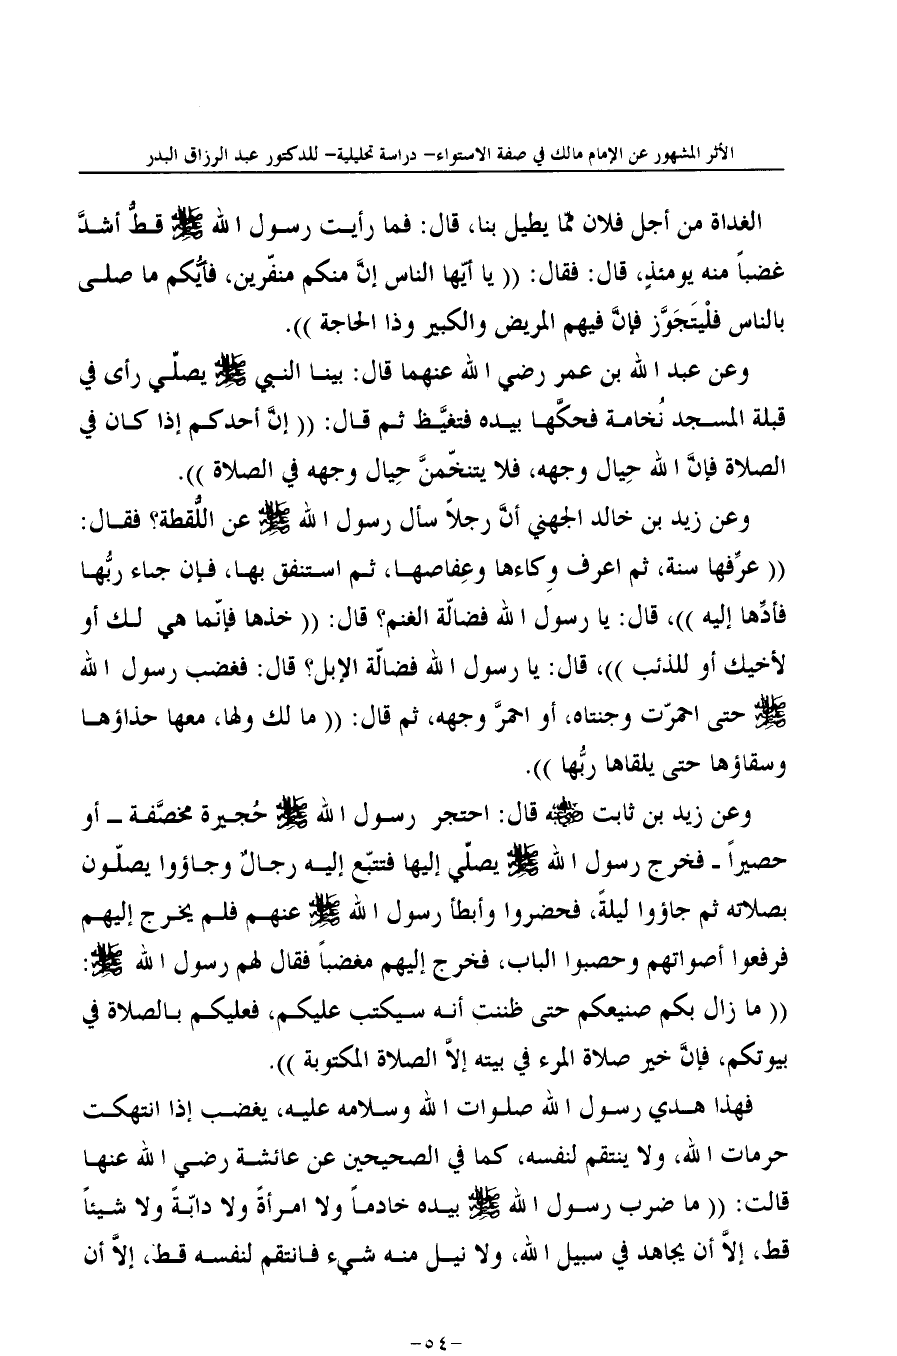 الأثر المشهور عن الإمام مالك في صفة الاستواء- دراسة تحليلية- للدكتور عبد الرزاق البدر
الغداة من أجل فلان ممّا يطيل بنا، قال: فما رأيت رسول الله ﷺ قطُّ أشدَّ
غضباً منه يومئذٍ، قال: فقال: (( يا أيّها الناس إنَّ منكم منفّرين، فأيُّكم ما صلى
بالناس فلْيَتَجَوَّز فإنَّ فيهم المريض والكبير وذا الحاجة )).
وعن عبد الله بن عمر رضي الله عنهما قال: بينا النبي ﷺ يصلّي رأى في
قبلة المسجد نُخامة فحكَّها بيده فتغيَّظ ثم قال: (( إنَّ أحدكم إذا كان في
الصلاة فإنَّ الله حِيال وجهه، فلا يتنخّمنَّ حِيال وجهه في الصلاة )).
وعن زيد بن خالد الجهني أنَّ رجلاً سأل رسول الله ﷺ عن اللُّقطة؟ فقال:
(( عرِّفها سنة، ثم اعرف وكاءها وعِفاصها، ثم استنفق بها، فإن جاء ربُّها
فأدِّها إليه ))، قال: يا رسول الله فضالّة الغنم؟ قال: (( خذها فإنّما هي لك أو
لأخيك أو للذئب ))، قال: يا رسول الله فضالّة الإبل؟ قال: فغضب رسول الله
ﷺ حتى احمرّت وجنتاه، أو احمرَّ وجهه، ثم قال: (( ما لك ولها، معها حذاؤها
وسقاؤها حتى يلقاها ربُّها )).
وعن زيد بن ثابت رضي الله عنه قال: احتجر رسول الله ﷺ حُجيرة مخصَّفة ـ أو
حصيراً ـ فخرج رسول الله ﷺ يصلّي إليها فتتبّع إليه رجالٌ وجاؤوا يصلّون
بصلاته ثم جاؤوا ليلةً، فحضروا وأبطأ رسول الله ﷺ عنهم فلم يخرج إليهم
فرفعوا أصواتهم وحصبوا الباب، فخرج إليهم مغضباً فقال لهم رسول الله ﷺ:
(( ما زال بكم صنيعكم حتى ظننت أنه سيكتب عليكم، فعليكم بالصلاة في
بيوتكم، فإنَّ خير صلاة المرء في بيته إلاَّ الصلاة المكتوبة )).
فهذا هدي رسول الله صلوات الله وسلامه عليه، يغضب إذا انتهكت
حرمات الله، ولا ينتقم لنفسه، كما في الصحيحين عن عائشة رضي الله عنها
قالت: (( ما ضرب رسول الله ﷺ بيده خادماً ولا امرأةً ولا دابّةً ولا شيئاً
قط، إلاَّ أن يجاهد في سبيل الله، ولا نيل منه شيء فانتقم لنفسه قط، إلاَّ أن
-٥٤-